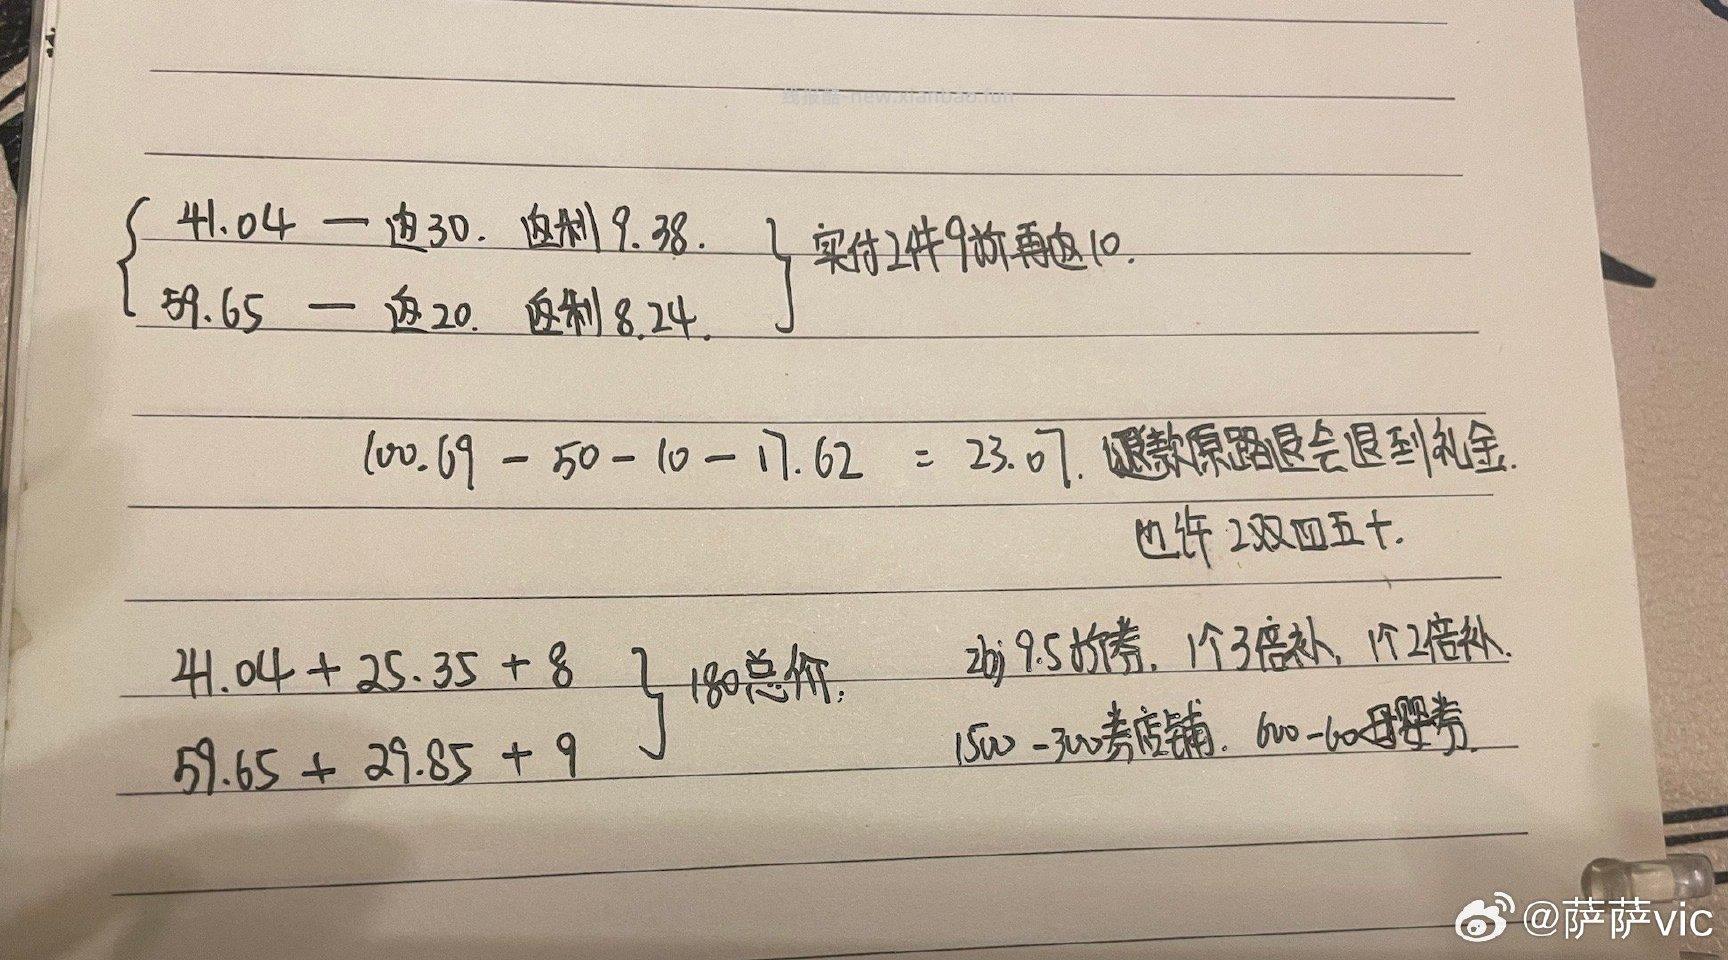 线报酷-new.xianbao.fun
41.04 — 返30. 返利9.38.
59.65 — 返20. 返利8.24.
实付2件9折再返10.
100.69 - 50 - 10 - 17.62 = 23.07. 退款原路退会退到礼金.
也许2双四五十.
41.04 + 25.35 + 8
59.65 + 29.85 + 9
180总价.
zbj 9.5折券. 1个3倍补. 1个2倍补.
1500-300券店铺. 600-60母婴券.
@萨萨vic